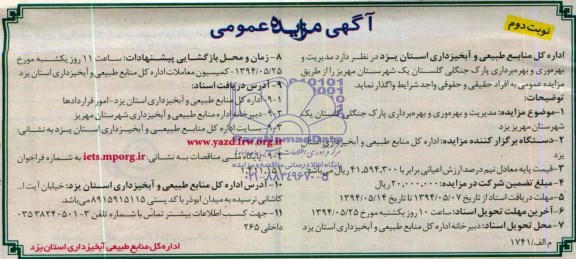 آگهی مزایده عمومی
نوبت دوم
اداره کل منابع طبیعی و آبخیزداری استان یزد در نظر دارد مدیریت و
بهره‌وری و بهره‌برداری پارک جنگلی گلستان یک شهرستان مهریز را از طریق
مزایده عمومی به افراد حقیقی و حقوقی واجد شرایط واگذار نماید.
توضیحات:
۱-موضوع مزایده: مدیریت و بهره‌وری و بهره‌برداری پارک جنگلی گلستان یک
شهرستان مهریز یزد
۲-دستگاه برگزار کننده مزایده: اداره کل منابع طبیعی و آبخیزداری استان
یزد
۳-قیمت پایه معادل نیم درصد ارزش اعیانی برابر با ۴۱,۵۹۴,۳۰۰ ریال می‌باشد.
۴-مبلغ تضمین شرکت در مزایده: ۲۰,۰۰۰,۰۰۰ ریال
۵-مهلت دریافت اسناد از تاریخ ۱۳۹۴/۰۵/۰۷ تا تاریخ ۱۳۹۴/۰۵/۱۴
۶-آخرین مهلت تحویل اسناد: ساعت ۱۰ روز یکشنبه مورخ ۱۳۹۴/۰۵/۲۵
۷-محل تحویل اسناد: دبیرخانه اداره کل منابع طبیعی و آبخیزداری استان یزد
م الف/۱۷۴۱
۸-زمان و محل بازگشایی پیشنهادات: ساعت ۱۱ روز یکشنبه مورخ
۱۳۹۴/۰۵/۲۵-کمیسیون معاملات اداره کل منابع طبیعی و آبخیزداری استان یزد
۹-آدرس دریافت اسناد:
۹-۱-اداره کل منابع طبیعی و آبخیزداری استان یزد-امور قراردادها
۹-۲-دبیرخانه اداره منابع طبیعی و آبخیزداری شهرستان مهریز
۹-۳-سایت اداره کل منابع طبیعی و آبخیزداری استان یزد به نشانی:
www.yazd.frw.org.ir
۹-۴-پایگاه ملی مناقصات به نشانی: iets.mporg.ir به شماره فراخوان
۱۰-آدرس اداره کل منابع طبیعی و آبخیزداری استان یزد: خیابان آیت ا..
کاشانی نرسیده به میدان ابوذر با کد پستی ۸۹۱۵۹۱۵۱۱۵ می‌باشد.
۱۱-جهت کسب اطلاعات بیشتر تماس با شماره تلفن ۳-۰۳۵۳۸۲۴۰۵۰۱
داخلی ۲۶۵
اداره کل منابع طبیعی آبخیزداری استان یزد
پایگاه اطلاع رسانی مناقصه و مزایده
۰۲۱-۸۸۳۴۹۶۷۰-۵